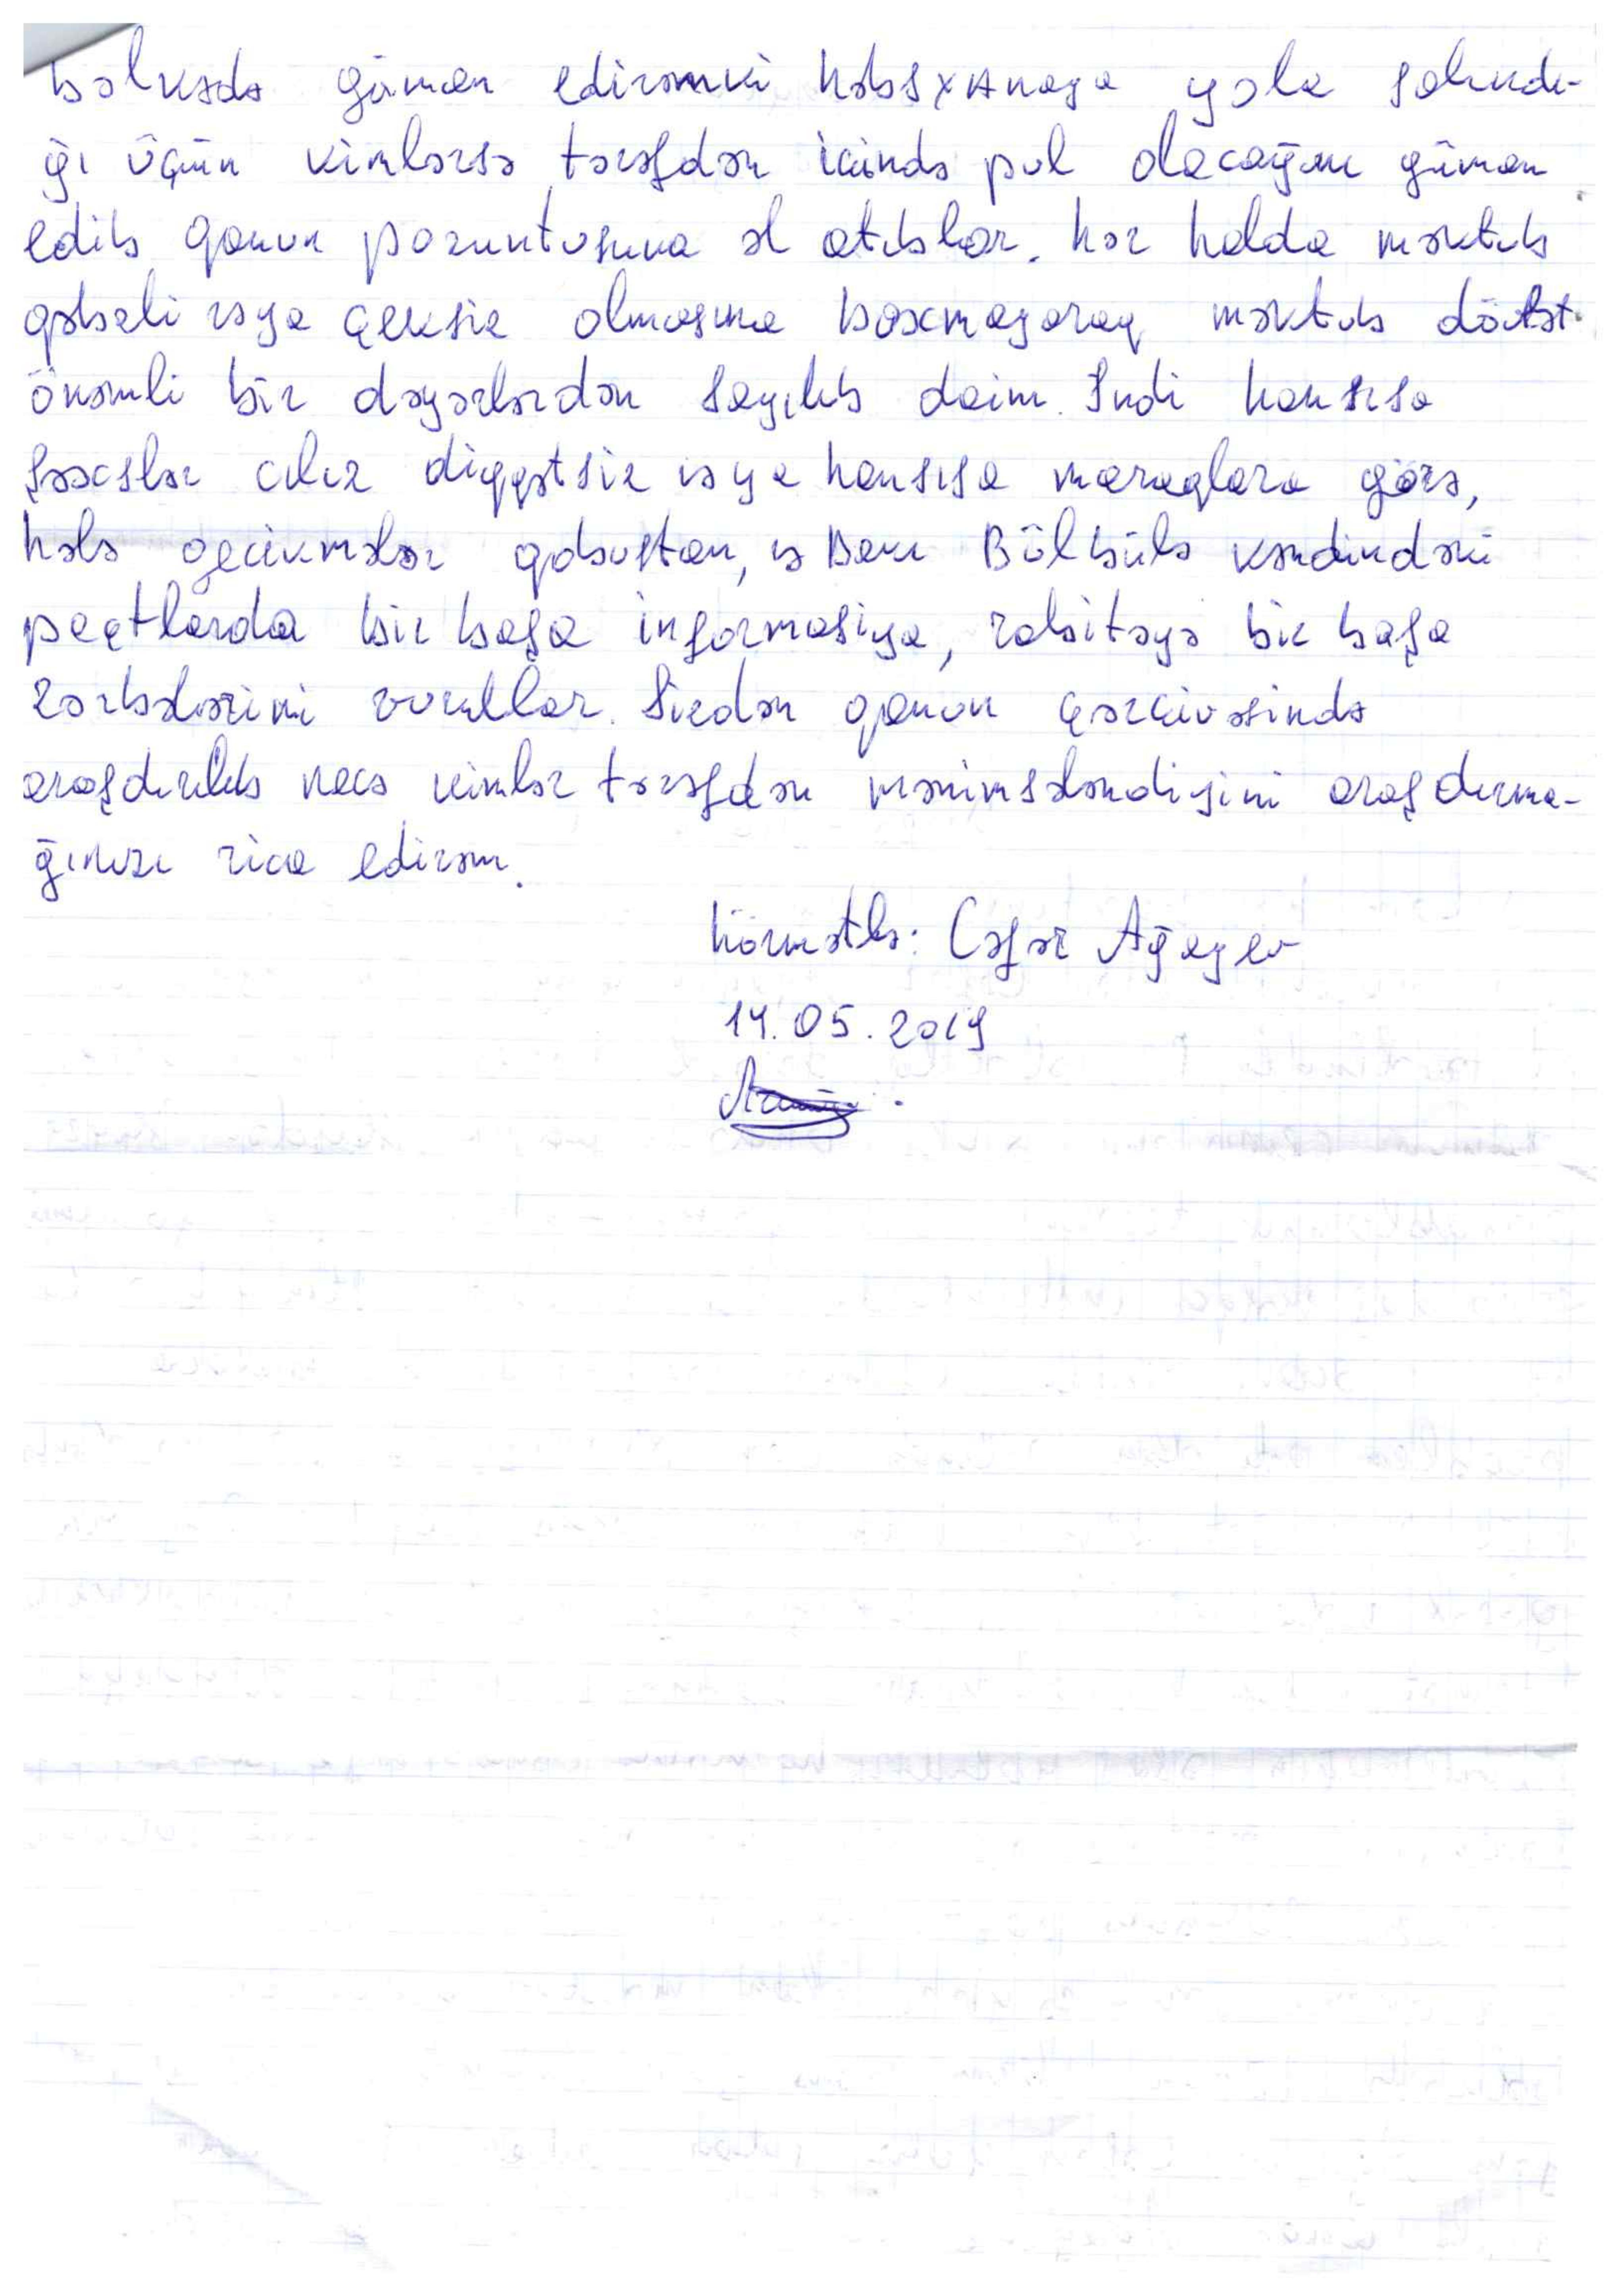 bəlkədə güman edirəmki həbsxanaya yola salındı-
ğı üçün kimlərsə tərəfdən icində pul olacağını güman
edib qanun pozuntusuna əl atıblar. hər halda məktub
qəbzli vəya çeksiz olmasına baxmayaraq məktub dövlət
önəmli bir dəyərlərdən sayılıb daim. Indi hansısa
şəxslər cılız diqqətsiz vəya hansısa maraqlara görə,
hələ gecikmələr qəbustan, və Bakı Bülbülə kəndindəki
peçtlarda bir başa informasiya, rabitəyə bir başa
zərbələrini vururlar. Sizdən qanun çərcivəsində
araşdırılıb necə kimlər tərəfdən mənimsələndiyini araşdırma-
ğınızı rica edirəm.
hörmətlə: Cəfər Ağayev
14.05.2019